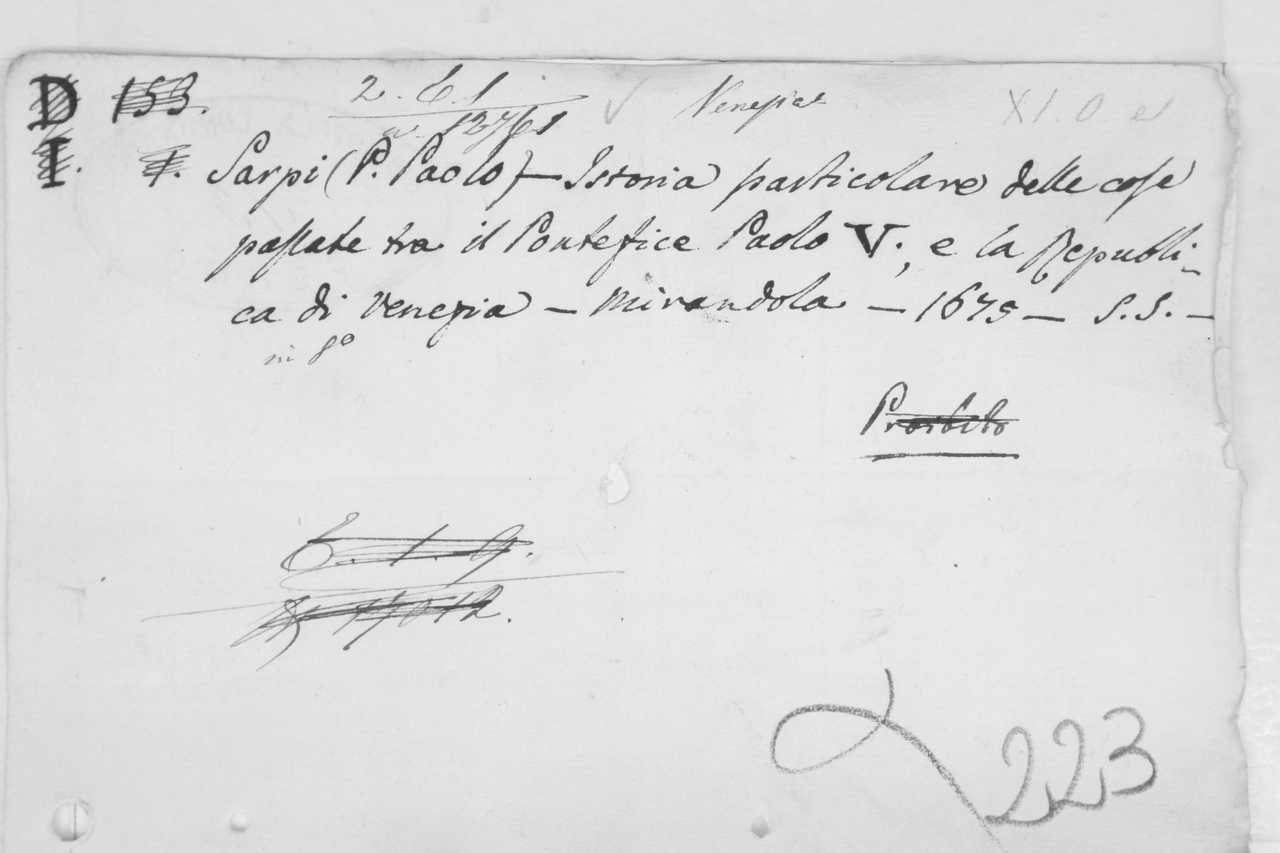 D 153. 2. 6. 1 Venezia XI.O.
I. a. 12761
Sarpi (P. Paolo) — Istoria particolare delle cose
passate tra il Pontefice Paolo V., e la Republi-
ca di Venezia — Mirandola — 1675 — S.S. —
in 8º
Proibito
6. 1. 9.
17012.
223